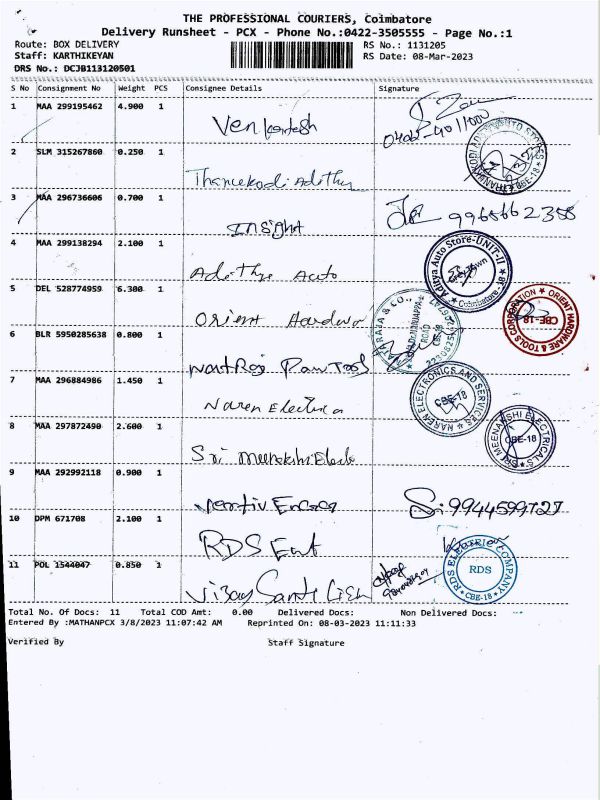 THE PROFESSIONAL COURIERS, Coimbatore
Delivery Runsheet - PCX - Phone No.:0422-3505555 - Page No.:1
Route: BOX DELIVERY
Staff: KARTHIKEYAN
DRS No.: DCJB113120501
RS No.: 1131205
RS Date: 08-Mar-2023
S No Consignment No Weight PCS Consignee Details Signature
1 MAA 299195462 4.900 1 Venkatesh
2 SLM 315267860 0.250 1
THANGAKODI ADITYA AUTO STORES CBE-18
3 MAA 296736606 0.700 1 INSIGHT
4 MAA 299138294 2.100 1 Adithya Auto
Aditya Auto Store-UNIT-II Coimbatore
5 DEL 528774959 6.300 1 Orient
ORIENT HARDWARE & TOOLS CORPORATION CBE-18
6 BLR 5950285638 0.800 1
ROAD
7 MAA 296884986 1.450 1 Naren
NAREN ELECTRONICS AND SERVICES CBE-18
8 MAA 297872490 2.600 1 Sri
SRI MEENAKSHI ELECTRICALS CBE-18
9 MAA 292992118 0.900 1
10 DPM 671708 2.100 1 RDS
RDS ELECTRIC COMPANY RDS CBE-18
11 POL 1544047 0.850 1
Total No. Of Docs: 11 Total COD Amt: 0.00 Delivered Docs: Non Delivered Docs:
Entered By :MATHANPCX 3/8/2023 11:07:42 AM Reprinted On: 08-03-2023 11:11:33
Verified By Staff Signature